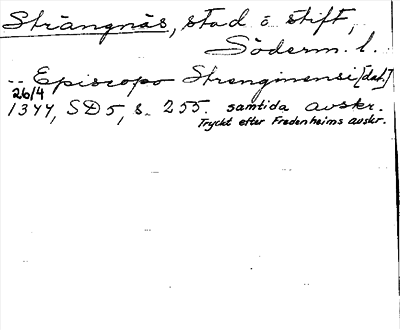 Strängnäs, stad o stift,
Söderm. l.
-- Episcopo Strenginensi [dat.]
26/4
1344, SD 5, s. 255. samtida avskr.
Tryckt efter Fredenheims avskr.